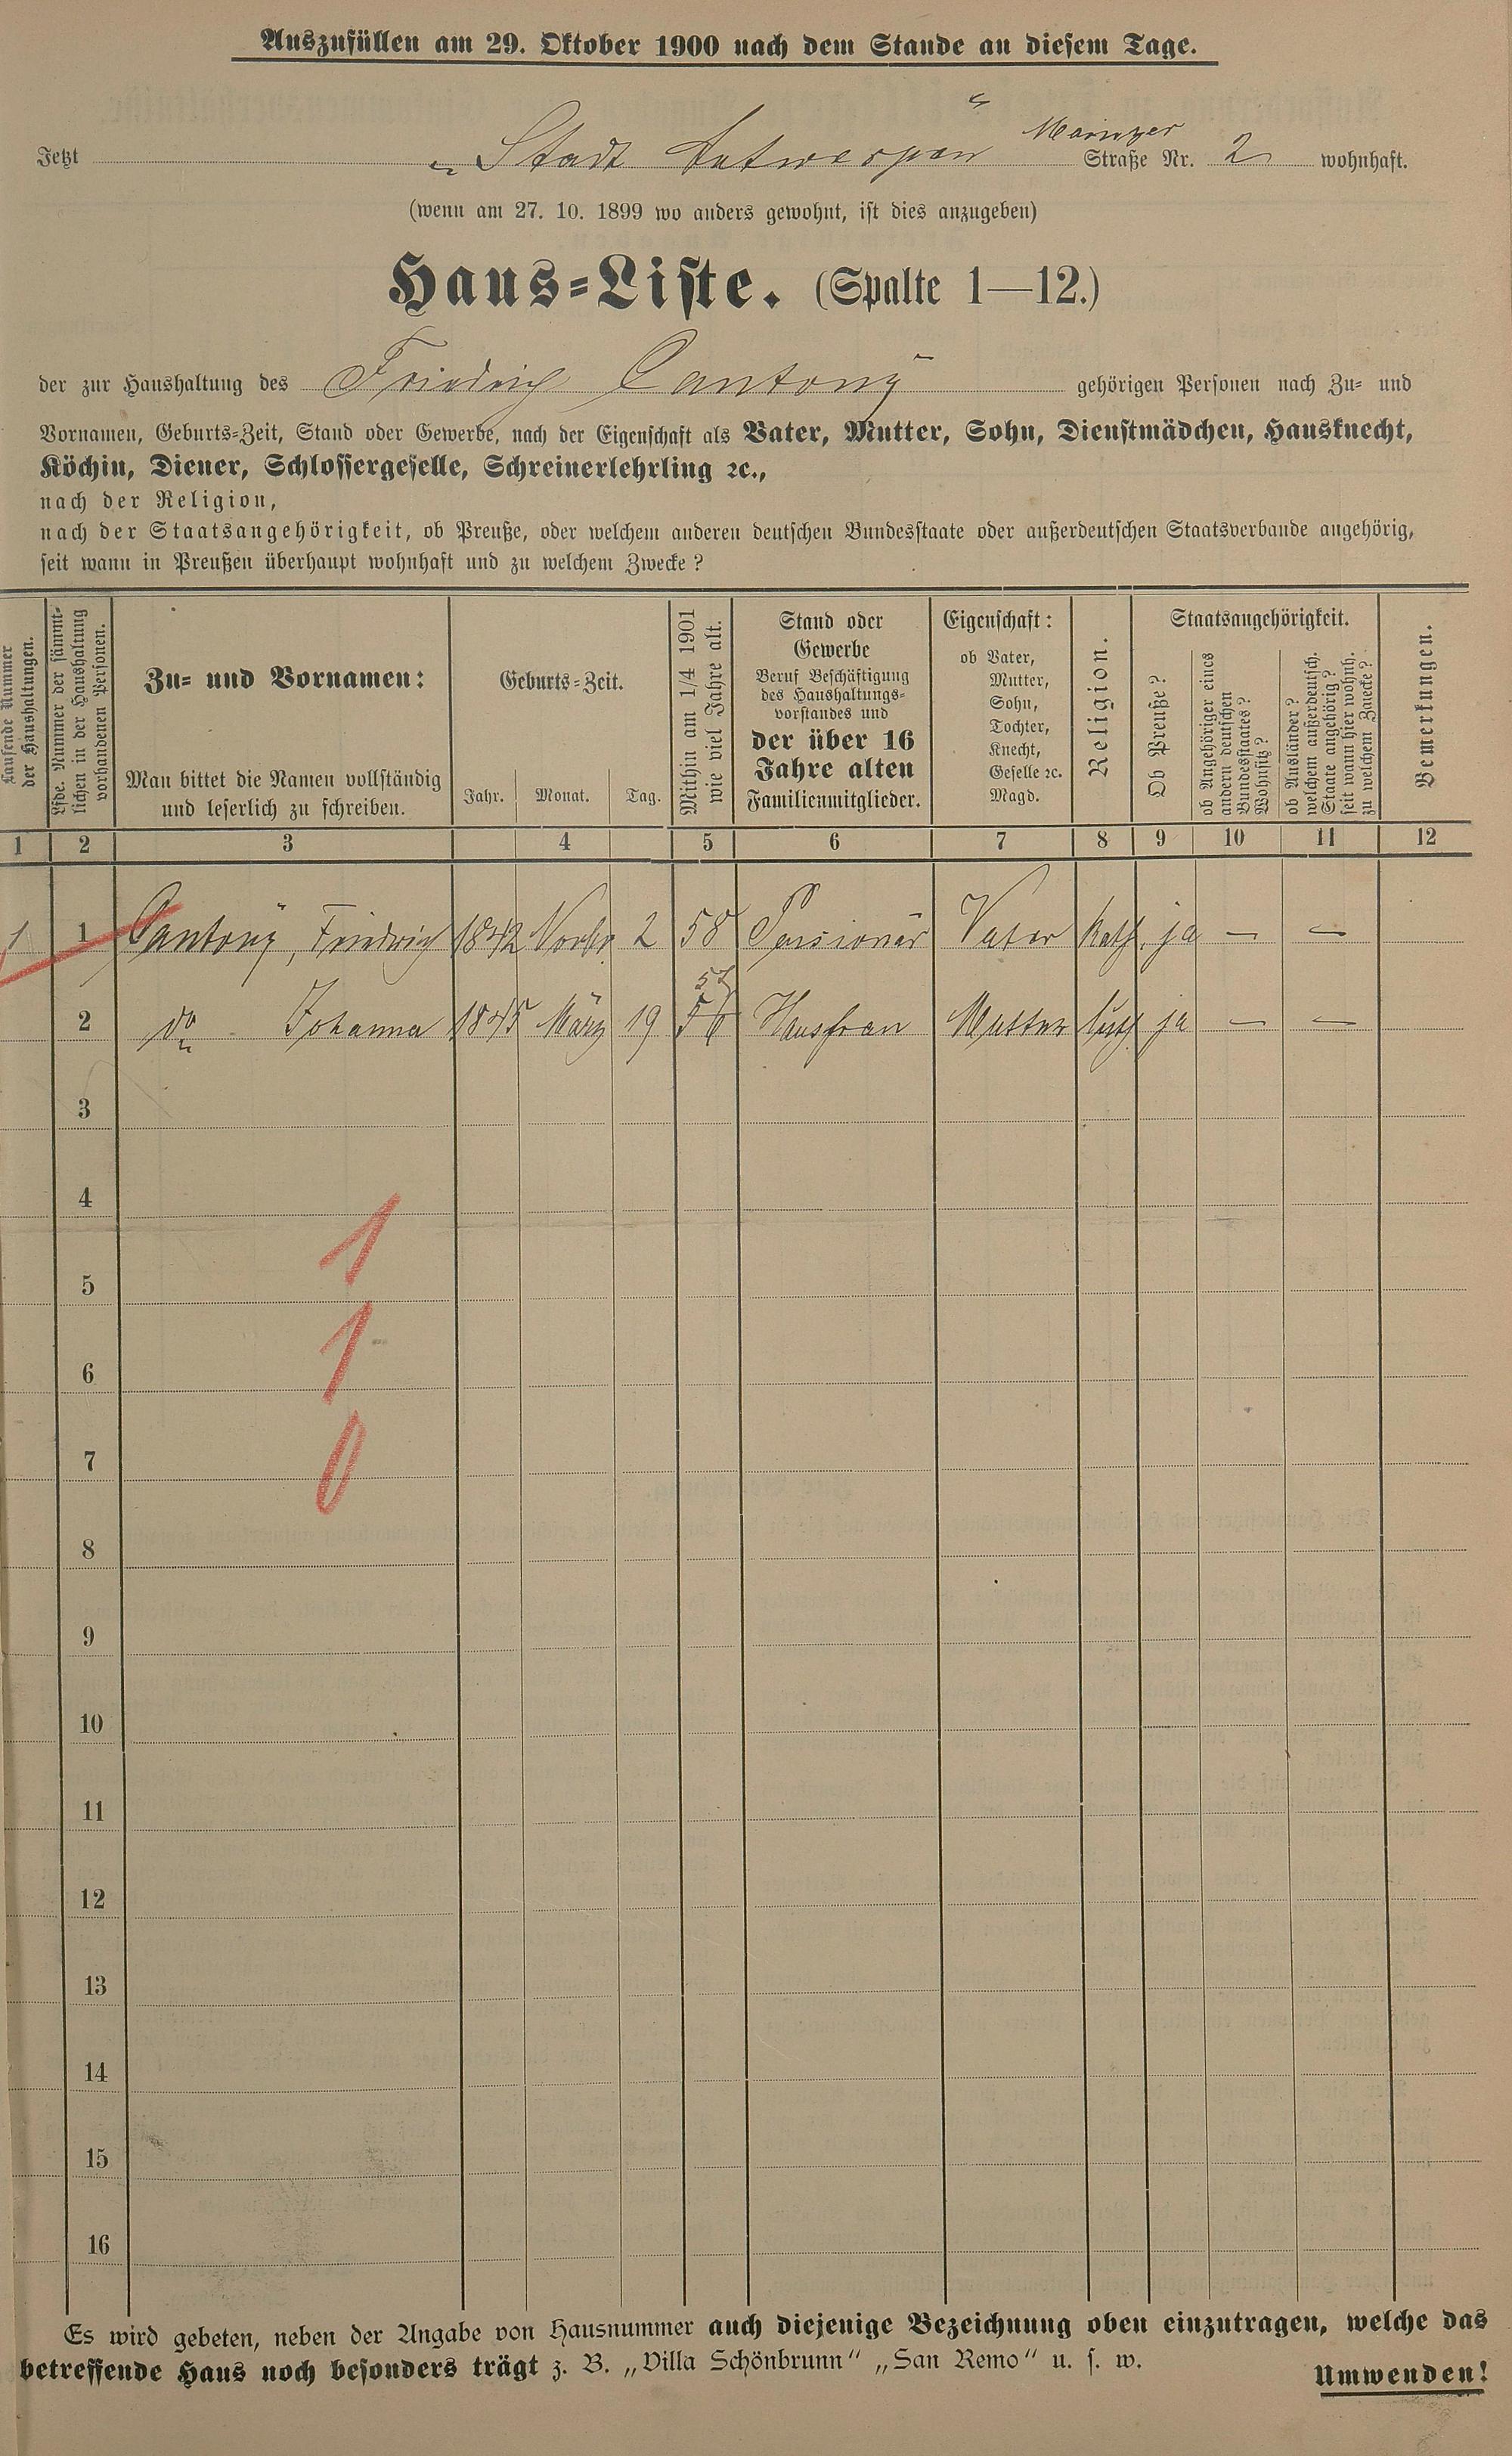 Auszufüllen am 29. Oktober 1900 nach dem Stande an diesem Tage.
Mainzer
Jetzt „Stadt Antwerpen“ Straße Nr. 2 wohnhaft.
(wenn am 27. 10. 1899 wo anders gewohnt, ist dies anzugeben)
Haus-Liste. (Spalte 1—12.)
der zur Haushaltung des Friedrich Cantony gehörigen Personen nach Zu- und
Vornamen, Geburts-Zeit, Stand oder Gewerbe, nach der Eigenschaft als Vater, Mutter, Sohn, Dienstmädchen, Hausknecht,
Köchin, Diener, Schlossergeselle, Schreinerlehrling ꝛc.,
nach der Religion,
nach der Staatsangehörigkeit, ob Preuße, oder welchem anderen deutschen Bundesstaate oder außerdeutschen Staatsverbande angehörig,
seit wann in Preußen überhaupt wohnhaft und zu welchem Zwecke?
Laufende Nummer
der Haushaltungen.
Lfde. Nummer der sämmt-
lichen in der Haushaltung
vorhandenen Personen.
Zu- und Vornamen:
Man bittet die Namen vollständig
und leserlich zu schreiben.
Geburts-Zeit.
Jahr. Monat. Tag.
Mithin am 1/4 1901
wie viel Jahre alt.
Stand oder
Gewerbe
Beruf Beschäftigung
des Haushaltungs-
vorstandes und
der über 16
Jahre alten
Familienmitglieder.
Eigenschaft:
ob Vater,
Mutter,
Sohn,
Tochter,
Knecht,
Geselle ꝛc.
Magd.
Religion.
Staatsangehörigkeit.
Ob Preuße?
ob Angehöriger eines
andern deutschen
Bundesstaates?
Wohnsitz?
ob Ausländer?
welchem außerdeutsch.
Staate angehörig?
seit wann hier wohnh.
zu welchem Zwecke?
Bemerkungen.
1 2 3 4 5 6 7 8 9 10 11 12
1 1 Cantony, Friedrich 1842 Novbr. 2 58 Pensionär Vater Kath. ja — —
2 do Johanna 1845 März 19 56 Hausfrau Mutter luth. ja — —
3
4
1
5
1
6
0
7
8
9
10
11
12
13
14
15
16
Es wird gebeten, neben der Angabe von Hausnummer auch diejenige Bezeichnung oben einzutragen, welche das
betreffende Haus noch besonders trägt z. B. „Villa Schönbrunn“ „San Remo“ u. s. w.
Umwenden!